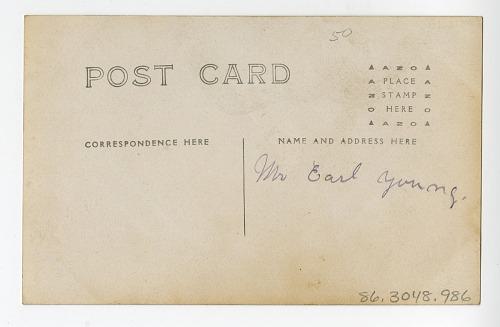 50
POST CARD
AZO
PLACE
STAMP
HERE
AZO
AZO
AZO
CORRESPONDENCE HERE
NAME AND ADDRESS HERE
Mr Earl Young.
86.3048.986